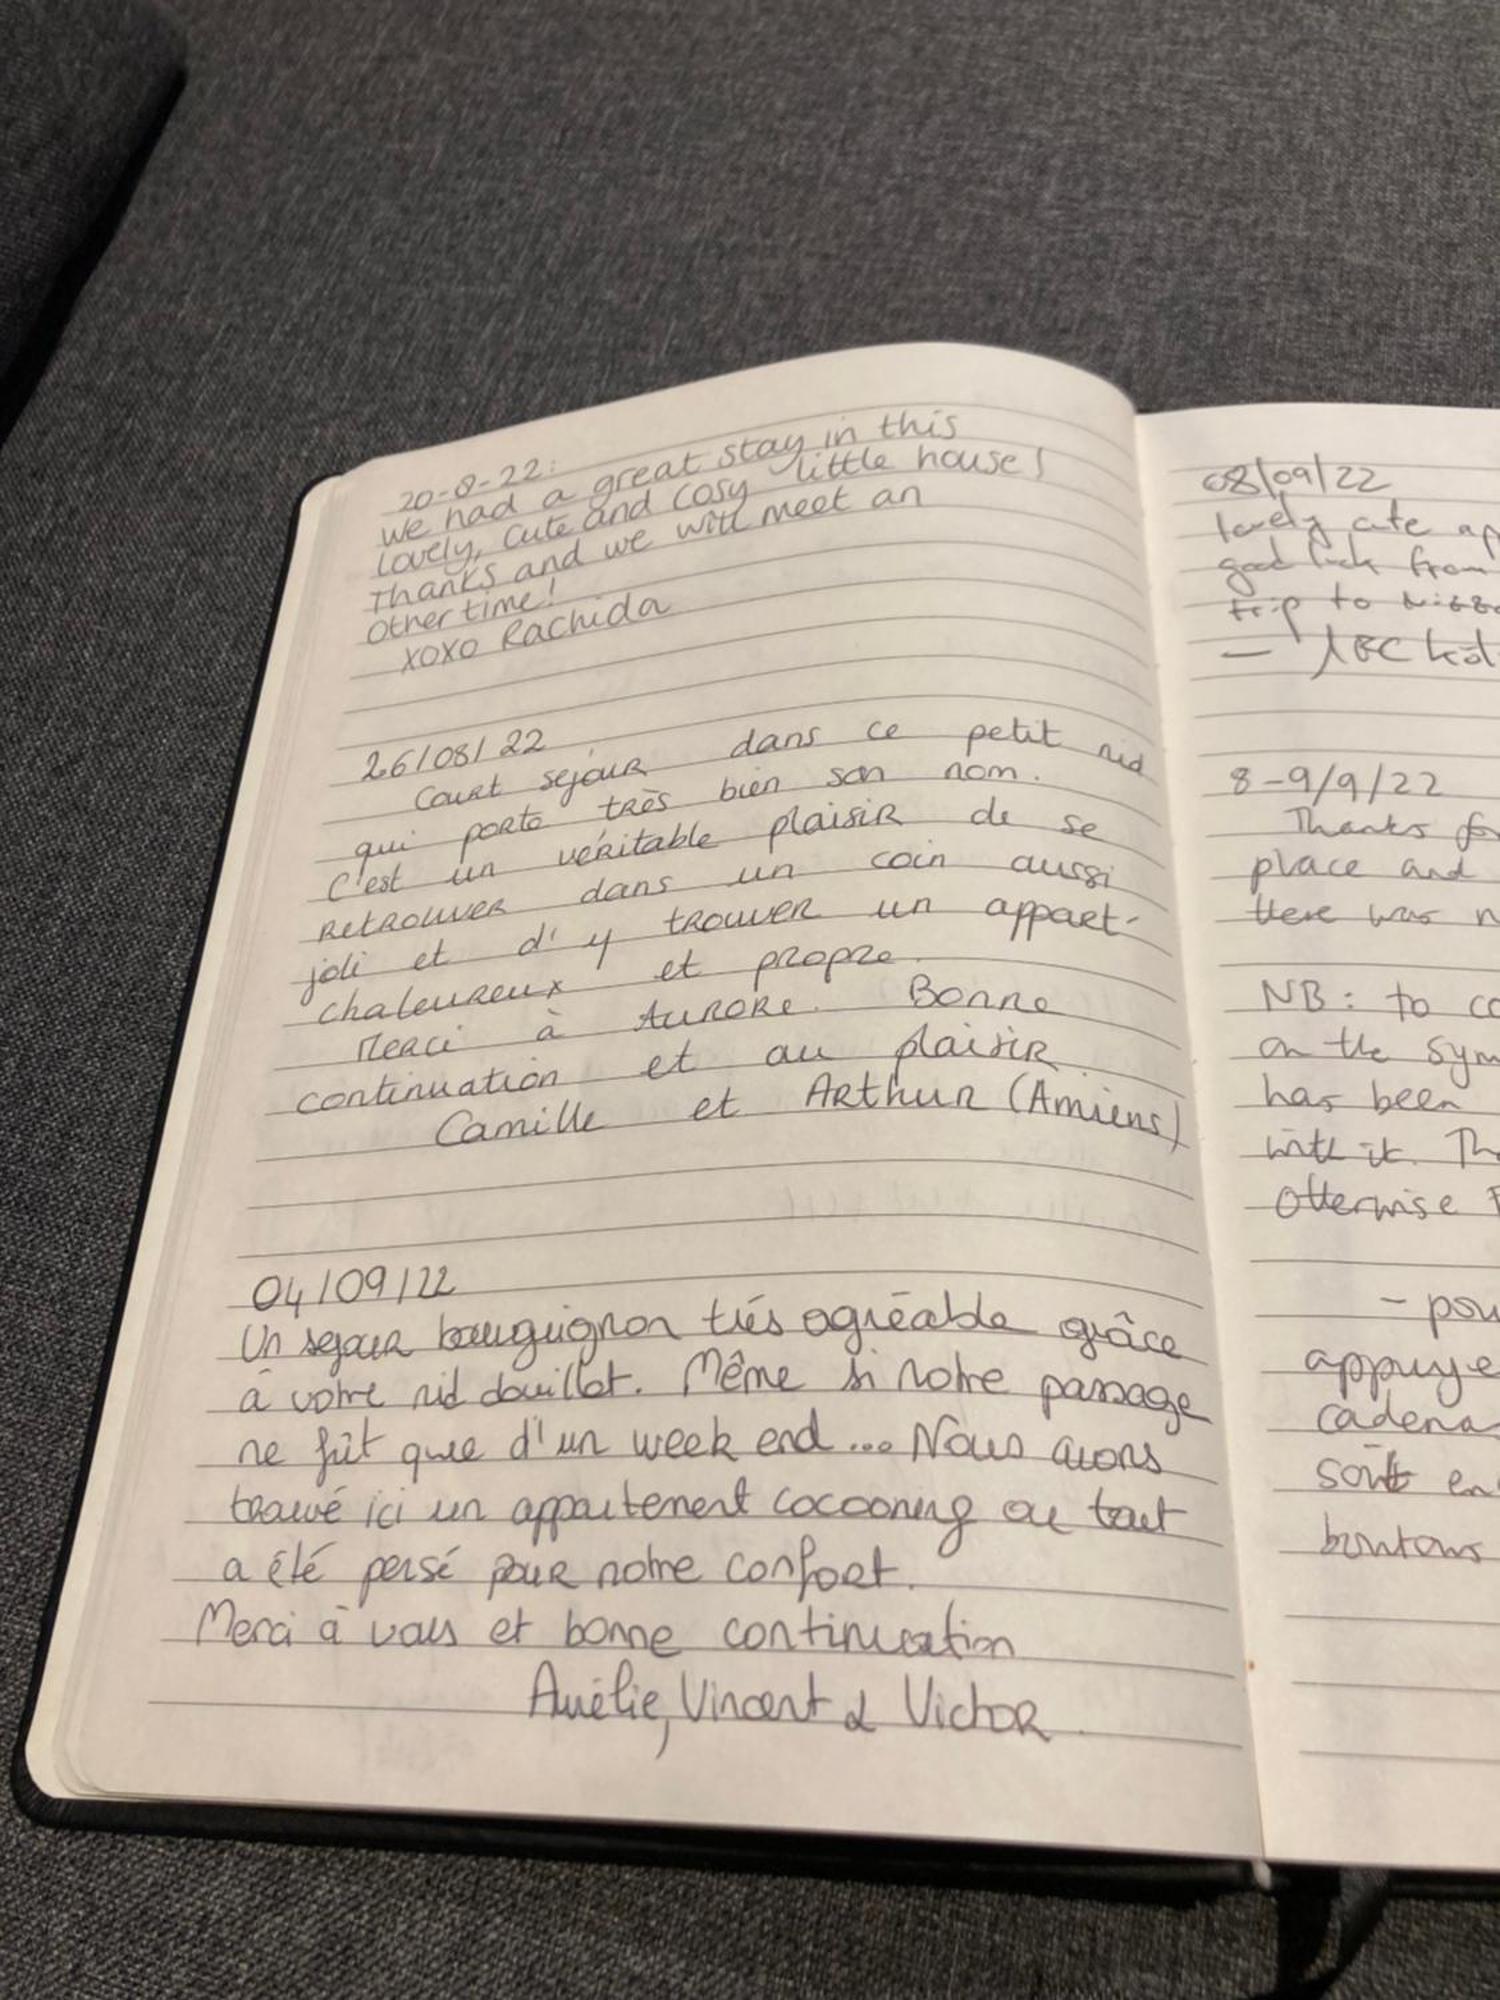 20-8-22:
we had a great stay in this
lovely, cute and cosy little house!
Thanks and we will meet an
other time!
xoxo Rachida
26/08/22
Court séjour dans ce petit nid
qui porte très bien son nom.
C'est un véritable plaisir de se
retrouver dans un coin aussi
joli et d'y trouver un appart-
chaleureux et propre.
Merci à Aurore. Bonne
continuation et au plaisir
Camille et Arthur (Amiens)
04/09/22
Un sejour bourguignon très agréable grâce
à votre nid douillet. Même si notre passage
ne fût que d'un week end... Nous avons
trouvé ici un appartement cocooning ou tout
a été pensé pour notre confort.
Merci à vous et bonne continuation
Aurélie, Vincent & Victor
08/09/22
lovely cute
good luck from
trip to
8-9/9/22
Thanks
place and
there was
NB: to
on the
has been
with it.
Otherwise
- pou
appuye
cadena
sont en
boutons